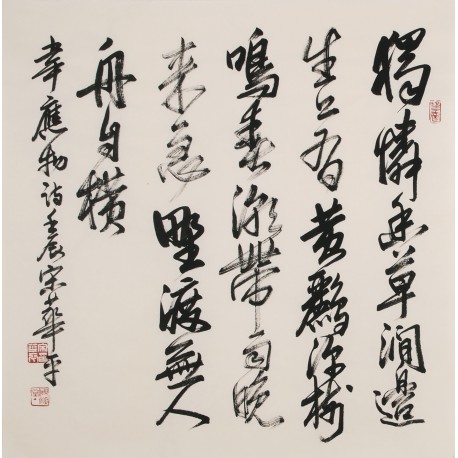 獨憐幽草澗邊
生上有黄鸝深樹
鳴春潮帶雨晚
来急野渡無人
舟自横
韋應物詩壬辰宋華平